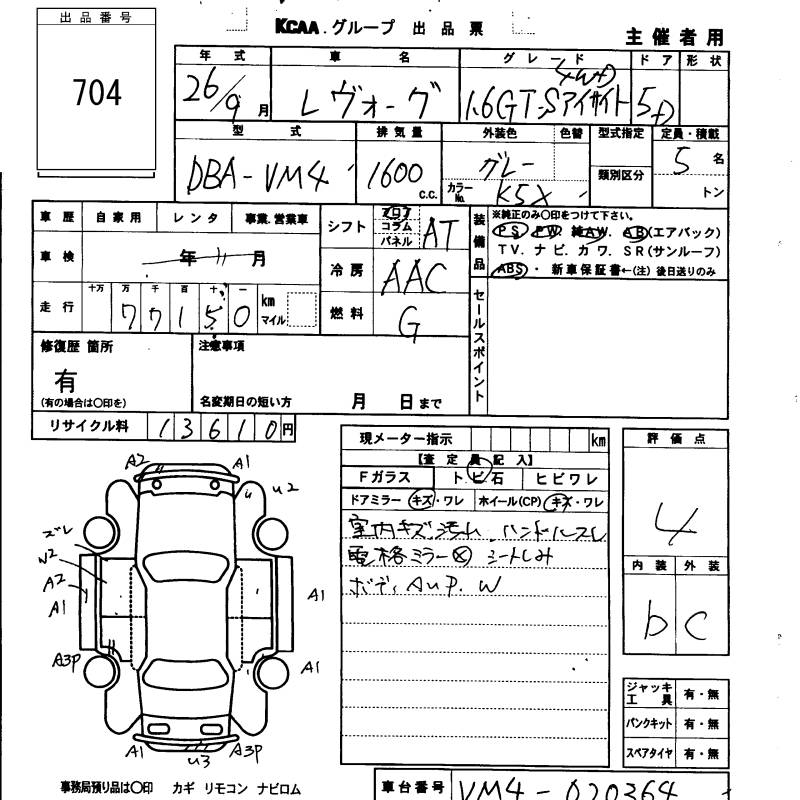 出品番号
704
KCAA.グループ 出品票
主催者用
年式 車名 グレード ドア 形状
26/9月 レヴォーグ 4WD 1.6GT-Sアイサイト 5D
型式 排気量 外装色 色替 型式指定 定員・積載
類別区分
DBA-VM4 1600 C.C. グレー カラーNo. K5X 5名
トン
車歴 自家用 レンタ 事業.営業車
車検 年 11月
走行 十万 万 千 百 十 一
77150 km マイル
シフト フロア コラム パネル AT
冷房 AAC
燃料 G
装備品
※純正のみ○印をつけて下さい。
PS PW 純AW. AB(エアバック)
TV. ナビ. カワ. SR(サンルーフ)
ABS ・ 新車保証書←(注) 後日送りのみ
セールスポイント
修復歴 箇所
有
(有の場合は○印を)
注意事項
名変期日の短い方 月 日まで
リサイクル料 13610円
現メーター指示 km
【査定員記入】
Fガラス トビ石 ヒビワレ
ドアミラー キズ・ワレ ホイール(CP) キズ・ワレ
室内キズ汚ム ハンドルスレ
電格ミラー× シートしみ
ボディAUP.W
評価点
4
内装 外装
b C
ジャッキ工具 有・無
パンクキット 有・無
スペアタイヤ 有・無
A2 A1
U2
ズレ
W2
A2
A1 A1
A3P A1
A1 U3 A3P
事務局預り品は○印 カギ リモコン ナビロム
車台番号 VM4-020364